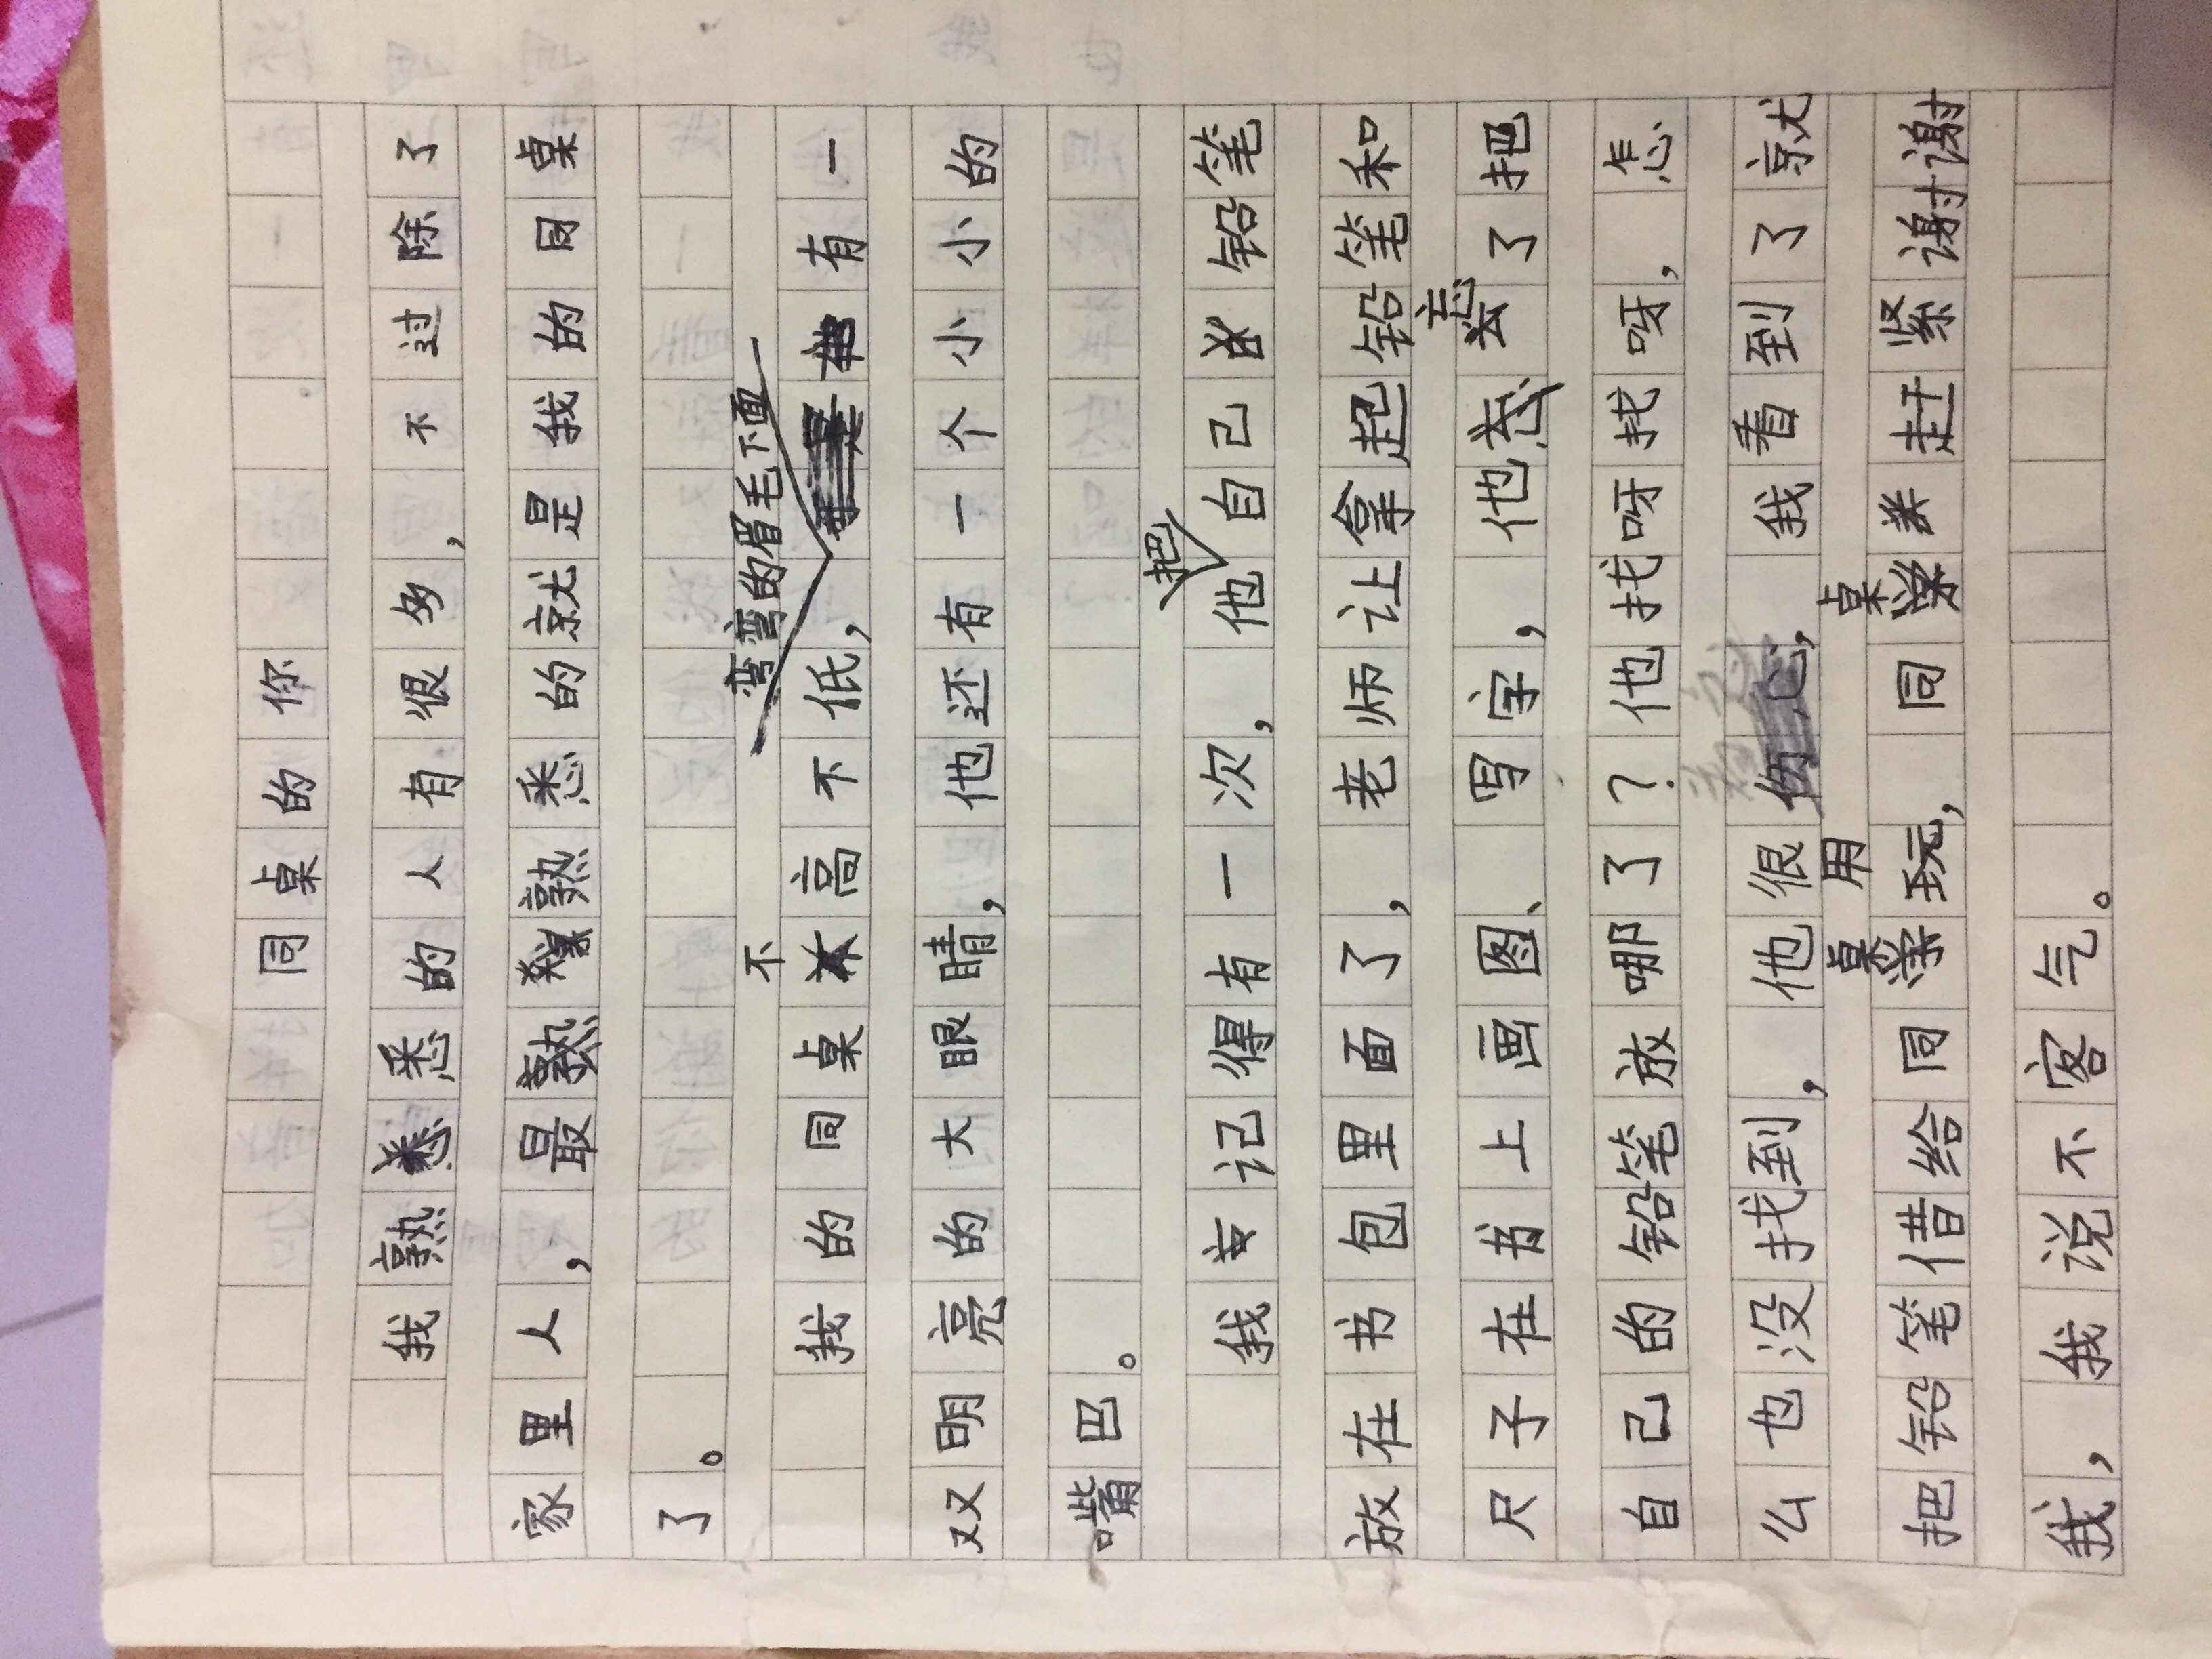 同桌的你
我熟悉的人有很多，不过除了
家里人，最熟熟悉的就是我的同桌
了。
弯弯的眉毛下面
我的同桌不高不低，有一
双明亮的大眼睛，他还有一个小小的
嘴巴。
我记得有一次，他把自己铅笔
放在书包里面了，老师让拿起铅笔和
尺子在书上画图、写字，他忘了把
自己的铅笔放哪了？他找呀找呀，怎
么也没找到，他很伤心，我看到了就
把铅笔借给同桌用，同桌赶紧谢谢
我，我说不客气。